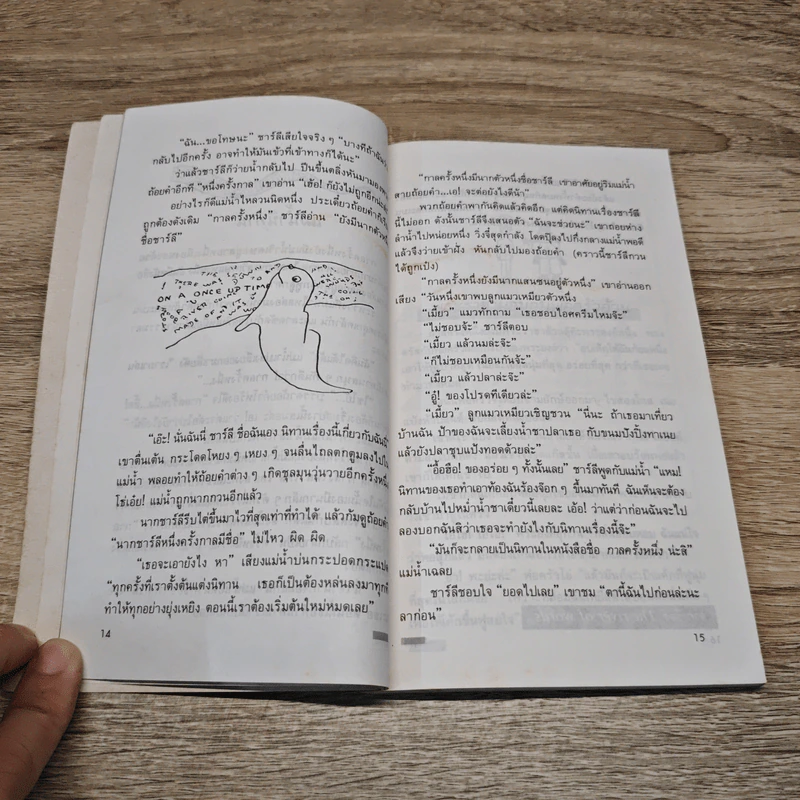 “ฉัน...ขอโทษนะ” ชาร์ลีเสียใจจริง ๆ “บางทีถ้าฉัน
กลับไปอีกครั้ง อาจทำให้มันเข้าที่เข้าทางก็ได้นะ”
ว่าแล้วชาร์ลีก็ว่ายน้ำกลับไป ปีนขึ้นตลิ่งหันมามอง
ถ้อยคำอีกที “หนึ่งครั้งกาล” เขาอ่าน “เฮ้อ! ก็ยังไม่ถูกอีกน่ะ
อย่างไรก็ดีแม่น้ำไหลวนนิดหนึ่ง ประเดี๋ยวถ้อยคำก็
ถูกต้องดังเดิม “กาลครั้งหนึ่ง” ชาร์ลีอ่าน “ยังมีนากตัว
ชื่อชาร์ลี”
ON A ONCE UP TIME
“เอ๊ะ! นั่นฉันนี่ ชาร์ลี ชื่อฉันเอง นิทานเรื่องนี้เกี่ยวกับฉัน
เขาตื่นเต้น กระโดดโหยง ๆ เหยง ๆ จนลื่นไถลตกตูมลงไปใน
แม่น้ำ พลอยทำให้ถ้อยคำต่าง ๆ เกิดชุลมุนวุ่นวายอีกครั้ง
โธ่เอ๋ย! แม่น้ำถูกนากกวนอีกแล้ว
นากชาร์ลีรีบไต่ขึ้นมาไวที่สุดเท่าที่ทำได้ แล้วก้มดูถ้อยคำ
“นากชาร์ลีหนึ่งครั้งกาลมีชื่อ” ไม่ไหว ผิด ผิด
“เธอจะเอายังไง หา” เสียงแม่น้ำบ่นกระปอดกระแปด
“ทุกครั้งที่เราตั้งต้นแต่งนิทาน เธอก็เป็นต้องหล่นลงมาทุกที
ทำให้ทุกอย่างยุ่งเหยิง ตอนนี้เราต้องเริ่มต้นใหม่หมดเลย”
14
“กาลครั้งหนึ่งมีนากตัวหนึ่งชื่อชาร์ลี เขาอาศัยอยู่ริมแม่น้ำ
สายถ้อยคำ...เอ! จะต่อยังไงดีน้า”
พวกถ้อยคำพากันคิดแล้วคิดอีก แต่คิดนิทานเรื่องชาร์ลี
นี้ไม่ออก ดังนั้นชาร์ลีจึงเสนอตัว “ฉันจะช่วยนะ” เขาถอยห่าง
ลำน้ำไปหน่อยหนึ่ง วิ่งจี๋สุดกำลัง โดดปุ๊ลงไปกึ่งกลางแม่น้ำพอดี
แล้วจึงว่ายเข้าฝั่ง หันกลับไปมองถ้อยคำ (คราวนี้ชาร์ลีกวน
ได้ถูกเป๋ง)
“กาลครั้งหนึ่งยังมีนากแสนซนอยู่ตัวหนึ่ง” เขาอ่านออก
เสียง “วันหนึ่งเขาพบลูกแมวเหมียวตัวหนึ่ง
“เมี้ยว” แมวทักถาม “เธอชอบไอศครีมไหมจ๊ะ”
“ไม่ชอบจ้ะ” ชาร์ลีตอบ
“เมี้ยว แล้วนมล่ะจ๊ะ”
“ก็ไม่ชอบเหมือนกันจ้ะ”
“เมี้ยว แล้วปลาล่ะจ๊ะ”
“อู๋! ของโปรดทีเดียวล่ะ”
“เมี้ยว” ลูกแมวเหมียวเชิญชวน “นี่นะ ถ้าเธอมาเที่ยว
บ้านฉัน ป้าของฉันจะเลี้ยงน้ำชาปลาเธอ กับขนมปังปิ้งทาเนย
แล้วยังปลาชุบแป้งทอดด้วยล่ะ”
“อื้อฮือ! ของอร่อย ๆ ทั้งนั้นเลย” ชาร์ลีพูดกับแม่น้ำ “แหม!
นิทานของเธอทำเอาท้องฉันร้องจ๊อก ๆ ขึ้นมาทันที ฉันเห็นจะต้อง
กลับบ้านไปหม่ำน้ำชาเดี๋ยวนี้เลยละ เอ้อ! ว่าแต่ว่าก่อนฉันจะไป
ลองบอกฉันสิว่าเธอจะทำยังไงกับนิทานเรื่องนี้จ๊ะ”
“มันก็จะกลายเป็นนิทานในหนังสือชื่อ กาลครั้งหนึ่ง น่ะสิ”
แม่น้ำเฉลย
ชาร์ลีชอบใจ “ยอดไปเลย” เขาชม “ตานี้ฉันไปก่อนล่ะนะ
ลาก่อน”
15